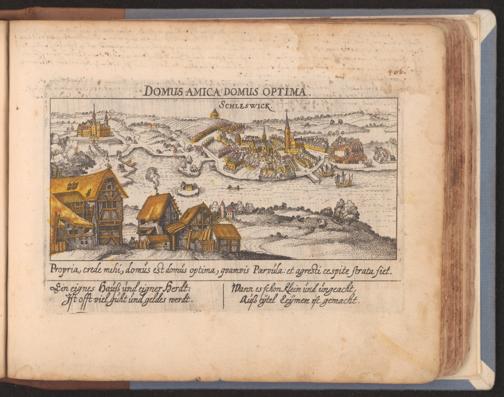 DOMUS AMICA DOMUS OPTIMA.
SCHLESWICK
Propria, crede mihi, domus est domus optima, quamvis Parvula et agresti cespite strata siet.
Ein eignes Hauß und eigner Herdt:
Ist offt viel guht und geldes werdt.
Wann es schon klein und ungeacht,
Auß eytel Leymen ist gemacht.